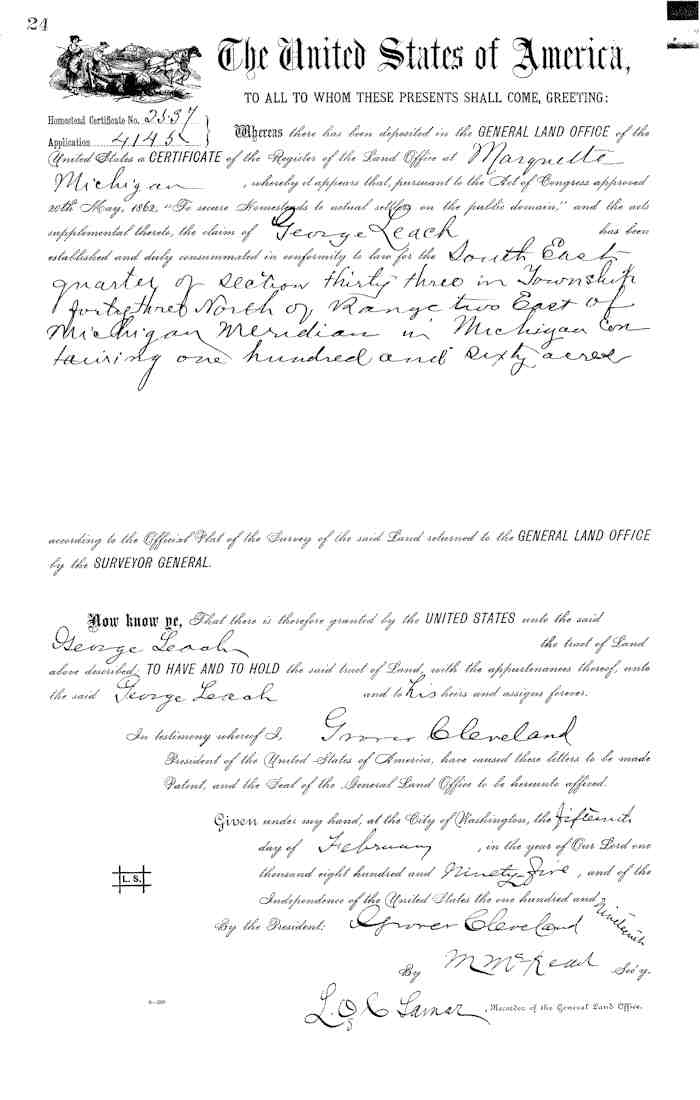 24
The United States of America,
TO ALL TO WHOM THESE PRESENTS SHALL COME, GREETING:
Homestead Certificate No. 2557
Application 4145
Whereas there has been deposited in the GENERAL LAND OFFICE of the
United States a CERTIFICATE of the Register of the Land Office at Marquette
Michigan , whereby it appears that, pursuant to the Act of Congress approved
20th May, 1862, "To secure Homesteads to actual settlers on the public domain," and the acts
supplemental thereto, the claim of George Leach has been
established and duly consummated in conformity to law for the South East
quarter of section thirty three in Township
forty three North of Range two East of
Michigan Meridian in Michigan con
taining one hundred and sixty acres
according to the Official Plat of the Survey of the said Land returned to the GENERAL LAND OFFICE
by the SURVEYOR GENERAL.
Now know ye, That there is therefore granted by the UNITED STATES unto the said
George Leach the tract of Land
above described, TO HAVE AND TO HOLD the said tract of Land, with the appurtenances thereof, unto
the said George Leach and to his heirs and assigns forever.
In testimony whereof I, Grover Cleveland
President of the United States of America, have caused these letters to be made
Patent, and the Seal of the General Land Office to be hereunto affixed.
Given under my hand, at the City of Washington, the fifteenth
day of February , in the year of Our Lord one
thousand eight hundred and Ninety five , and of the
Independence of the United States the one hundred and Nineteenth
L. S.
By the President: Grover Cleveland
By M McKean Sec'y.
L. Q C Lamar , Recorder of the General Land Office.